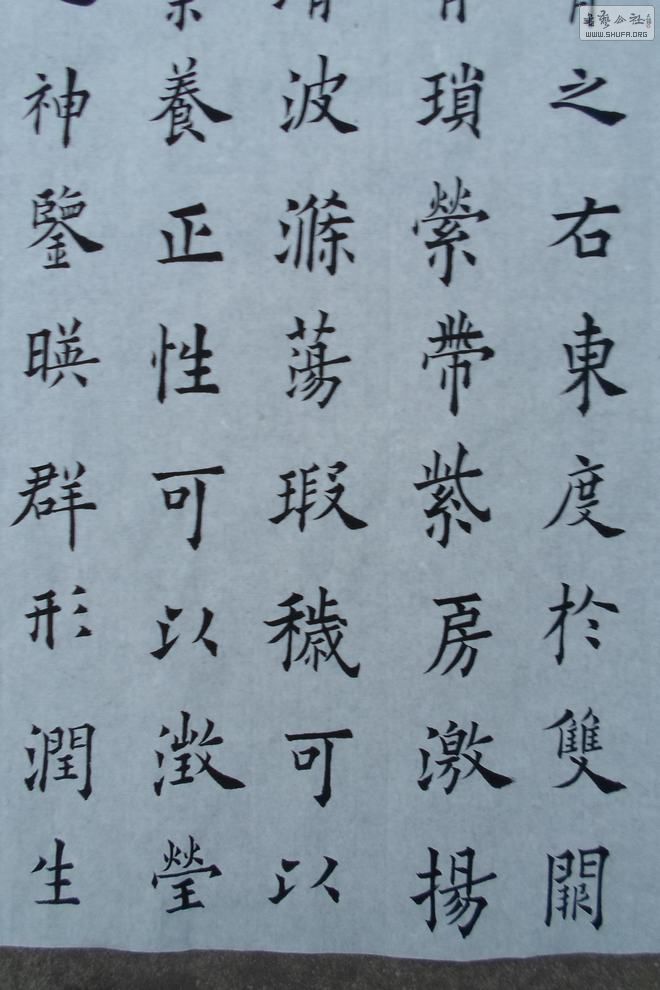 之右東度於雙闕
瑣縈帶紫房激揚
波滌蕩瑕穢可以
養正性可以澂瑩
神鑒暎群形潤生
書藝公社
WWW.SHUFA.ORG